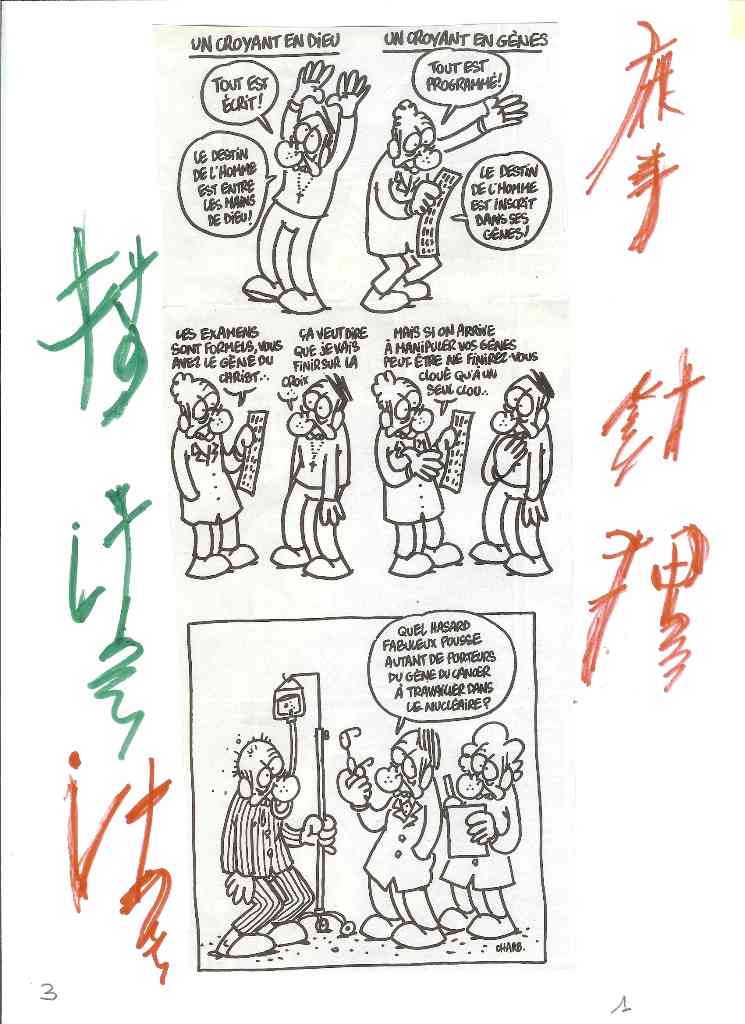 UN CROYANT EN DIEU
UN CROYANT EN GÈNES
TOUT EST
ÉCRIT!
LE DESTIN
DE L'HOMME
EST ENTRE
LES MAINS
DE DIEU!
TOUT EST
PROGRAMMÉ!
LE DESTIN
DE L'HOMME
EST INSCRIT
DANS SES
GÈNES!
LES EXAMENS
SONT FORMELS, VOUS
AVEZ LE GÈNE DU
CHRIST...
ÇA VEUT DIRE
QUE JE VAIS
FINIR SUR LA
CROIX
MAIS SI ON ARRIVE
À MANIPULER VOS GÈNES
PEUT ÊTRE NE FINIREZ-VOUS
CLOUÉ QU'À UN
SEUL CLOU...
QUEL HASARD
FABULEUX POUSSE
AUTANT DE PORTEURS
DU GÈNE DU CANCER
À TRAVAILLER DANS
LE NUCLÉAIRE?
CHARB.
3
1